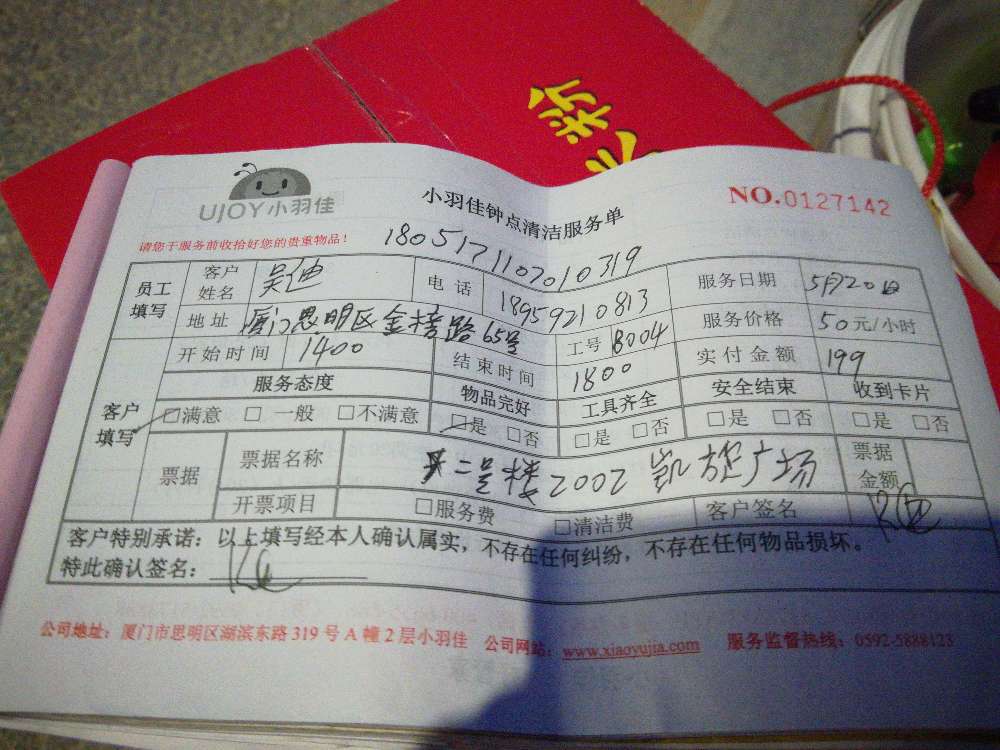 新
UJOY小羽佳
小羽佳钟点清洁服务单
NO.0127142
请您于服务前收拾好您的贵重物品！
1805171107010319
员工填写 客户姓名 吴迪 电话 18959210813 服务日期 5月20日
地址 厦门思明区金榜路65号 工号 B004 服务价格 50元/小时
开始时间 1400 结束时间 1800 实付金额 199
客户填写 服务态度 物品完好 工具齐全 安全结束 收到卡片
□满意 □一般 □不满意 □是 □否 □是 □否 □是 □否 □是 □否
票据 票据名称 二号楼2002 凯旋广场 票据金额
开票项目 □服务费 □清洁费 客户签名
客户特别承诺：以上填写经本人确认属实，不存在任何纠纷，不存在任何物品损坏。
特此确认签名：
公司地址：厦门市思明区湖滨东路319号A幢2层小羽佳 公司网站：www.xiaoyujia.com 服务监督热线：0592-5888123